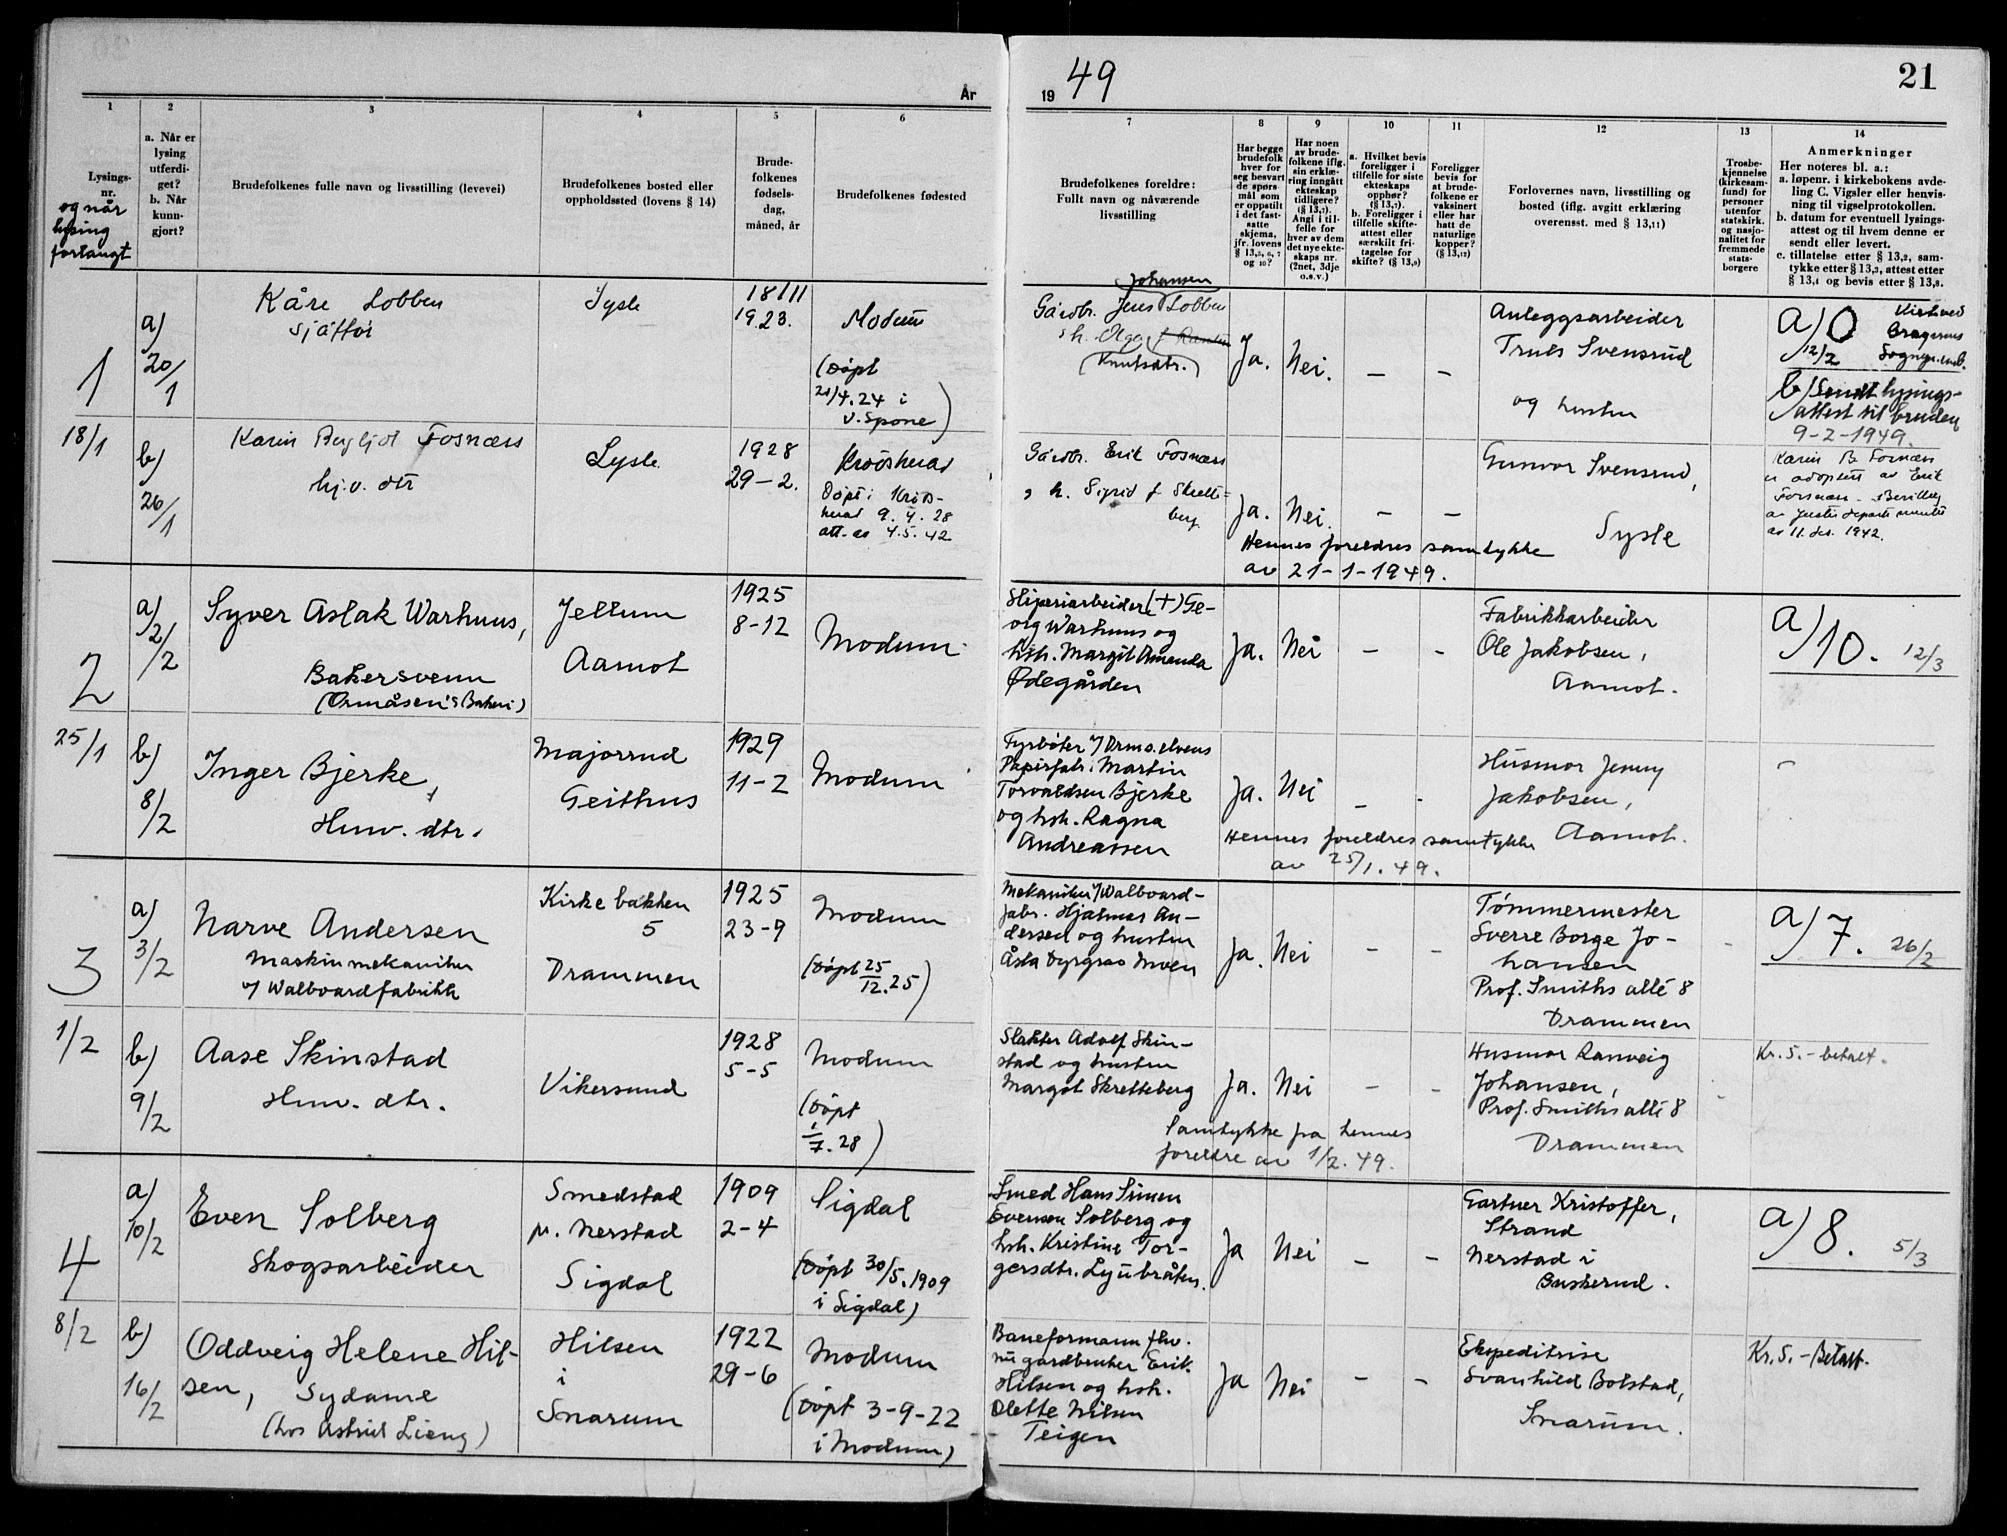 År
19 49
21
1
2
3
4
5
6
7
8
9
10
11
12
13
14
Lysings-
nr.
og når
lysing
forlangt
a. Når er
lysing
utferdi-
get?
b. Når
kunn-
gjort?
Brudefolkenes fulle navn og livsstilling (levevei)
Brudefolkenes bosted eller
oppholdssted (lovens § 14)
Brude-
folkenes
fødsels-
dag,
måned, år
Brudefolkenes fødested
Brudefolkenes foreldre:
Fullt navn og nåværende
livsstilling
Har begge
brudefolk
hver for
seg besvart
de spørs-
mål som
er oppstilt
i det fast-
satte
skjema,
jfr. lovens
§ 13,5, 6, 7
og 10?
Har noen
av brude-
folkene iflg.
sin erklæ-
ring inngått
ekteskap
tidligere?
(§ 13,7).
Angi i til-
felle for
hver av dem
det nye ekte-
skaps nr.
(2net, 3dje
o.s.v.)
a. Hvilket bevis
foreligger i
tilfelle for siste
ekteskaps
opphør?
(§ 13,7).
b. Foreligger i
tilfelle skifte-
attest eller
særskilt fri-
tagelse for
skifte? (§ 13,9)
Foreligger
bevis for
at brude-
folkene er
vaksinert
eller har
hatt de
naturlige
kopper?
(§ 13,12)
Forlovernes navn, livsstilling og
bosted (iflg. avgitt erklæring
overensst. med § 13,11)
Trosbe-
kjennelse
(kirkesam-
fund) for
personer
utenfor
statskirk.
og nasjo-
nalitet for
fremmede
stats-
borgere
Anmerkninger
Her noteres bl. a.:
a. løpenr. i kirkebokens avde-
ling C. Vigsler eller henvis-
ning til vigselprotokollen.
b. datum for eventuell lysings-
attest og til hvem denne er
sendt eller levert.
c. tillatelse etter § 13,2, sam-
tykke etter § 13,3, attest etter
§ 13,4 og bevis etter § 13,8.
1
18/1
a)
20/1
Kåre Lobben
sjåffør
Sysle
18/11
1923.
Modum
(Døpt
21/4.24 i
V. Spone)
Johansen
Gårdbr. Jens Lobben
h. Olga
(Knutsdtr.)
Ja.
Nei.
–
–
Anleggsarbeider
Truls Svensrud
og hustru
a) 0
12/2
Viet ved
Bragernes
b) Sendt lysings-
attest til bruden
9-2-1949.
b)
26/1
Karin Bergljot Fosnæss
hj.v. dtr
Lysle
1928
29-2.
Krødsherad
Døpt i Krøds-
herad 9.4.28
att. av 4.5.42
Gårdbr. Erik Fosnæss
h. Sigrid f Skrette-
berg
Ja.
Nei.
–
–
Hennes foreldres samtykke
av 21-1-1949.
Gunvor Svensrud,
Sysle
Karin B. Fosnæss
er adoptert av Erik
Fosnæss. Bevilling
av Justisdepartementet
av 11. des. 1942.
2
25/1
a)
2/2
Syver Aslak Warhuus,
Bakersvenn
(Ormåsen's Bakeri)
Jellum
Aamot
1925
8-12
Modum
Sliperiarbeider (+) Ge-
org Warhuus og
hsh. Margit Amanda
Ødegården
Ja.
Nei
–
-
Fabrikkarbeider
Ole Jakobsen,
Aamot.
a) 10. 12/3
b)
8/2
Inger Bjerke,
Hmv. dtr.
Majorrud
Geithus
1929
11-2
Modum
Fyrbøter v/ Drms.elvens
Papirfabr. Martin
Torvaldsen Bjerke
og hsh. Ragna
Andreassen
Ja.
Nei
–
-
Hennes foreldres samtykke
av 25/1.49.
Husmor Jenny
Jakobsen,
Aamot.
3
1/2
a)
3/2
Narve Andersen
Maskinmekaniker
v/ Walboardfabrikk
Kirkebakken
5
Drammen
1925
23-9
Modum
(Døpt 25/12.25)
Mekaniker v/Walboard-
fabr. Hjalmar An-
dersen og hustru
Åsta Dyrgras Moen
Ja.
Nei
–
–
Tømmermester
Sverre Borge Jo-
hansen
Prof. Smiths allé 8
Drammen
a) 7. 26/2
b)
9/2
Aase Skinstad
Hmv. dtr.
Vikersund
1928
5-5
Modum
(Døpt
1/7.28)
Slakter Adolf Skin-
stad og hustru
Margot Skretteberg
Ja.
Nei
–
–
Samtykke fra hennes
foreldre av 1/2.49.
Husmor Ranveig
Johansen,
Prof. Smiths allé 8
Drammen
Kr. 5.- betalt.
4
8/2
a)
10/2
Even Solberg
Skogsarbeider
Smedstad
pr. Nerstad
Sigdal
1909
2-4
Sigdal
(Døpt 30/5.1909
i Sigdal)
Smed Hans Simen
Evensen Solberg og
hsh. Kristine Tor-
gersdtr. Lyubråten.
Ja
Nei
–
–
Gartner Kristoffer,
Strand
Nerstad i
Buskerud.
a) 8. 5/3
b)
16/2
Oddveig Helene Hil-
sen, Sydame
(hos Astrid Lieng)
Hilsen
i
Snarum
1922
29-6
Modum
(Døpt 3-9-22
i Modum)
Baneformann fhv.
nu gardbruker Erik
Hilsen og hsh.
Olette Nilsen
Teigen
Ja
Nei
–
–
Ekspeditrise
Svanhild Bolstad,
Snarum.
Kr. 5.- Betalt.